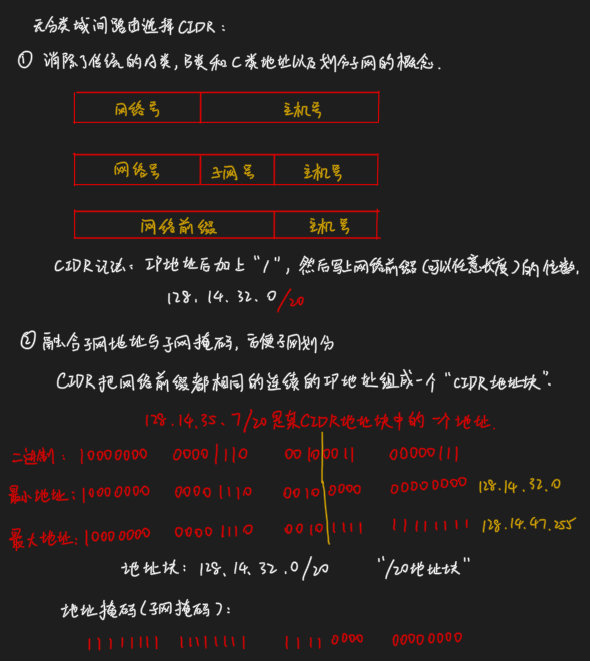 无分类域间路由选择CIDR:
① 消除了传统的A类,B类和C类地址以及划分子网的概念.
网络号 主机号
网络号 子网号 主机号
网络前缀 主机号
CIDR记法: IP地址后加上"/", 然后写上网络前缀(可以任意长度)的位数.
128.14.32.0/20
② 融合子网地址与子网掩码, 方便子网划分
CIDR把网络前缀都相同的连续的IP地址组成一个"CIDR地址块".
128.14.35.7/20是某CIDR地址块中的一个地址.
二进制: 10000000 00001110 00100011 00000111
最小地址: 10000000 00001110 00100000 00000000 128.14.32.0
最大地址: 10000000 00001110 00101111 11111111 128.14.47.255
地址块: 128.14.32.0/20 "/20地址块"
地址掩码(子网掩码):
11111111 11111111 11110000 00000000